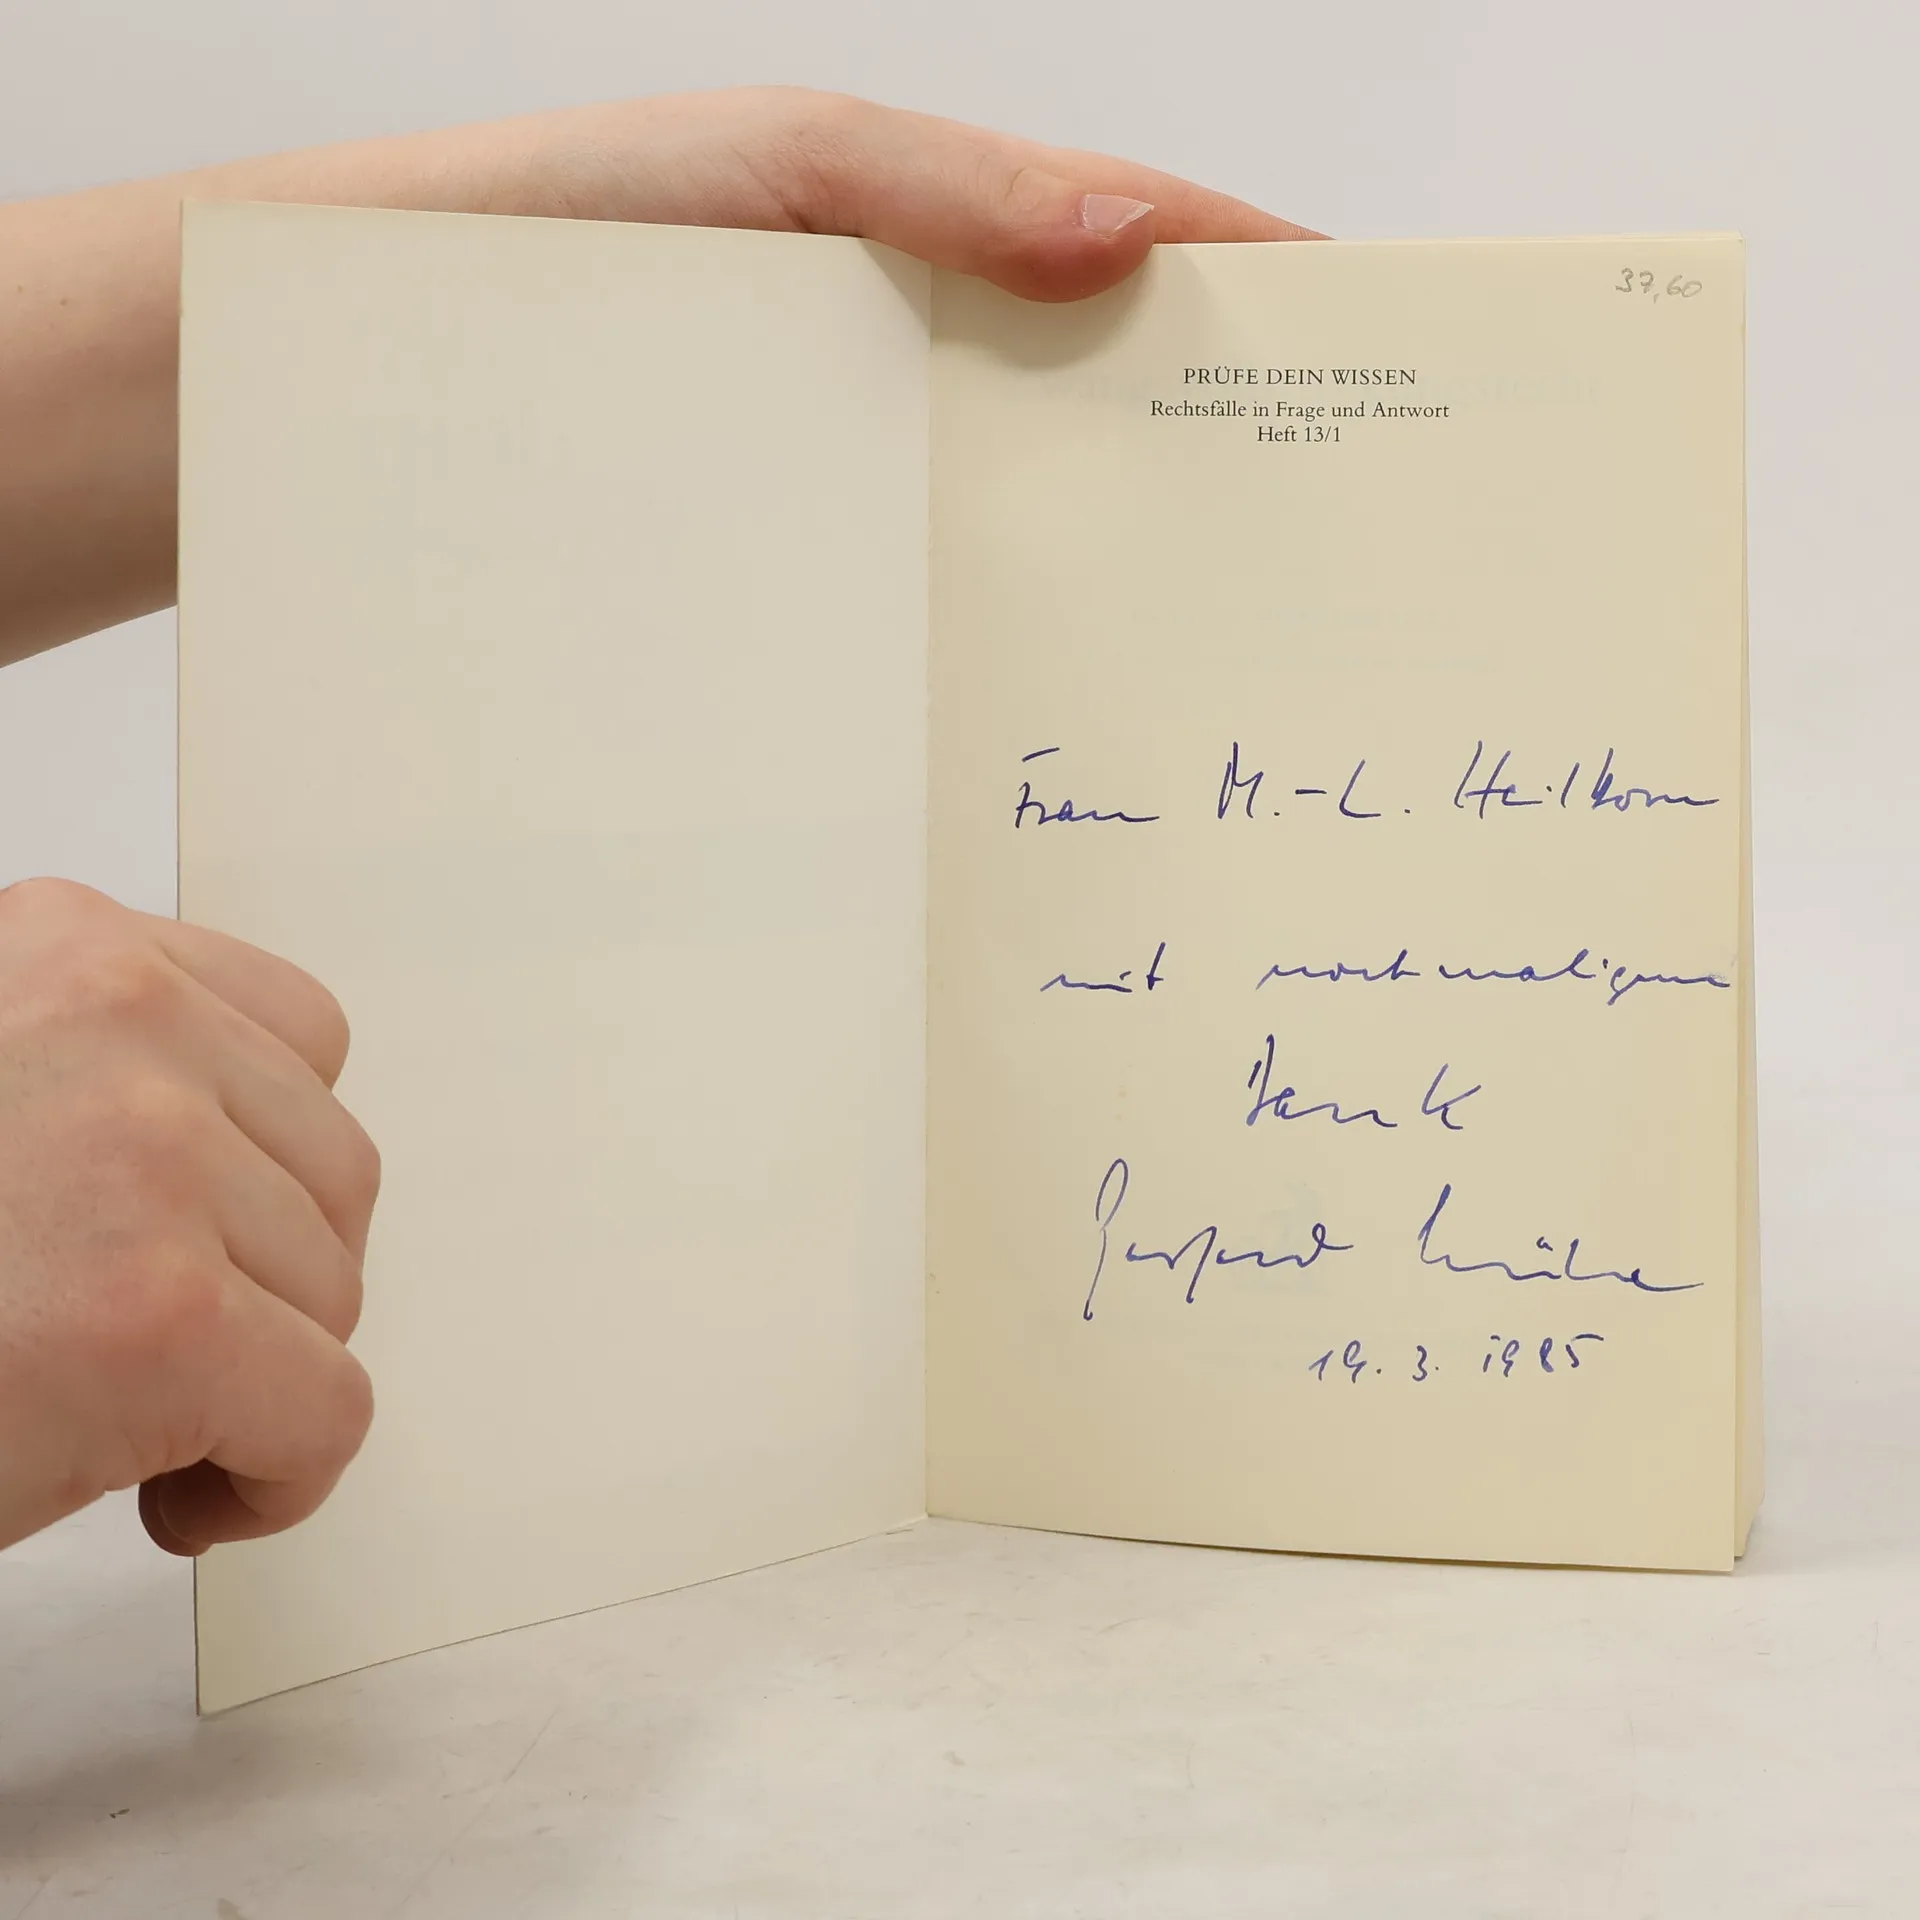 37,60
PRÜFE DEIN WISSEN
Rechtsfälle in Frage und Antwort
Heft 13/1
Frau M.-L. Heilborn
mit nochmaligem
Dank
19. 3. 1985